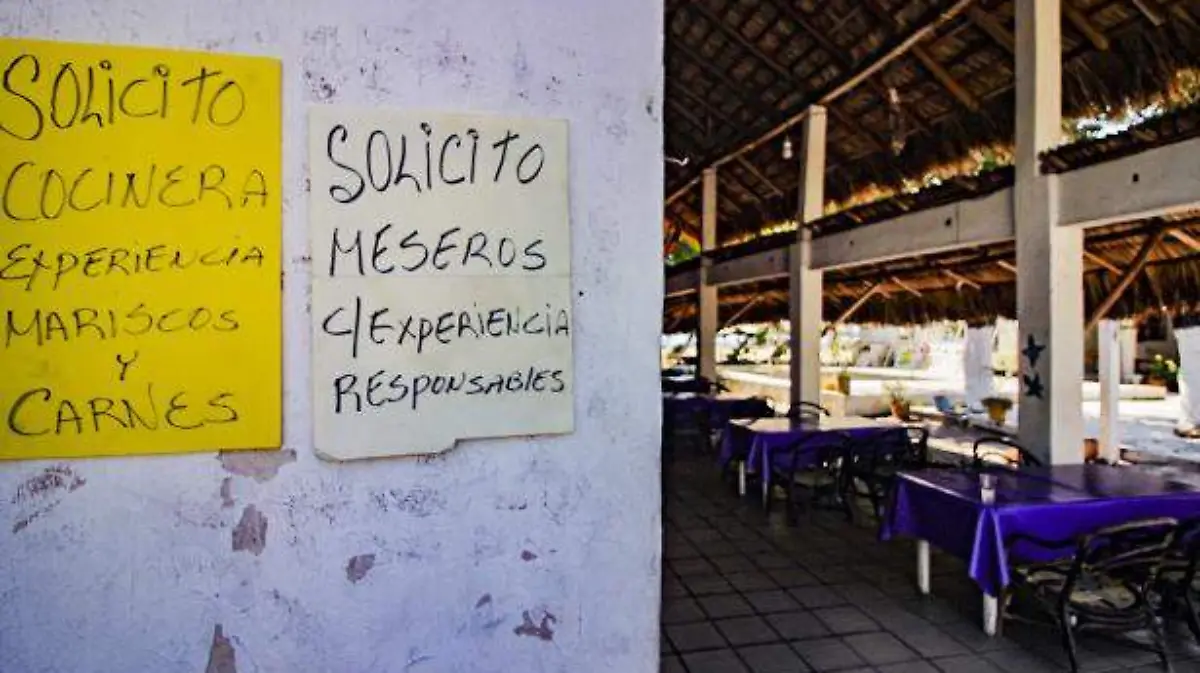 SOLICITO
COCINERA
EXPERIENCIA
MARISCOS
Y
CARNES
SOLICITO
MESEROS
C/EXPERIENCIA
RESPONSABLES